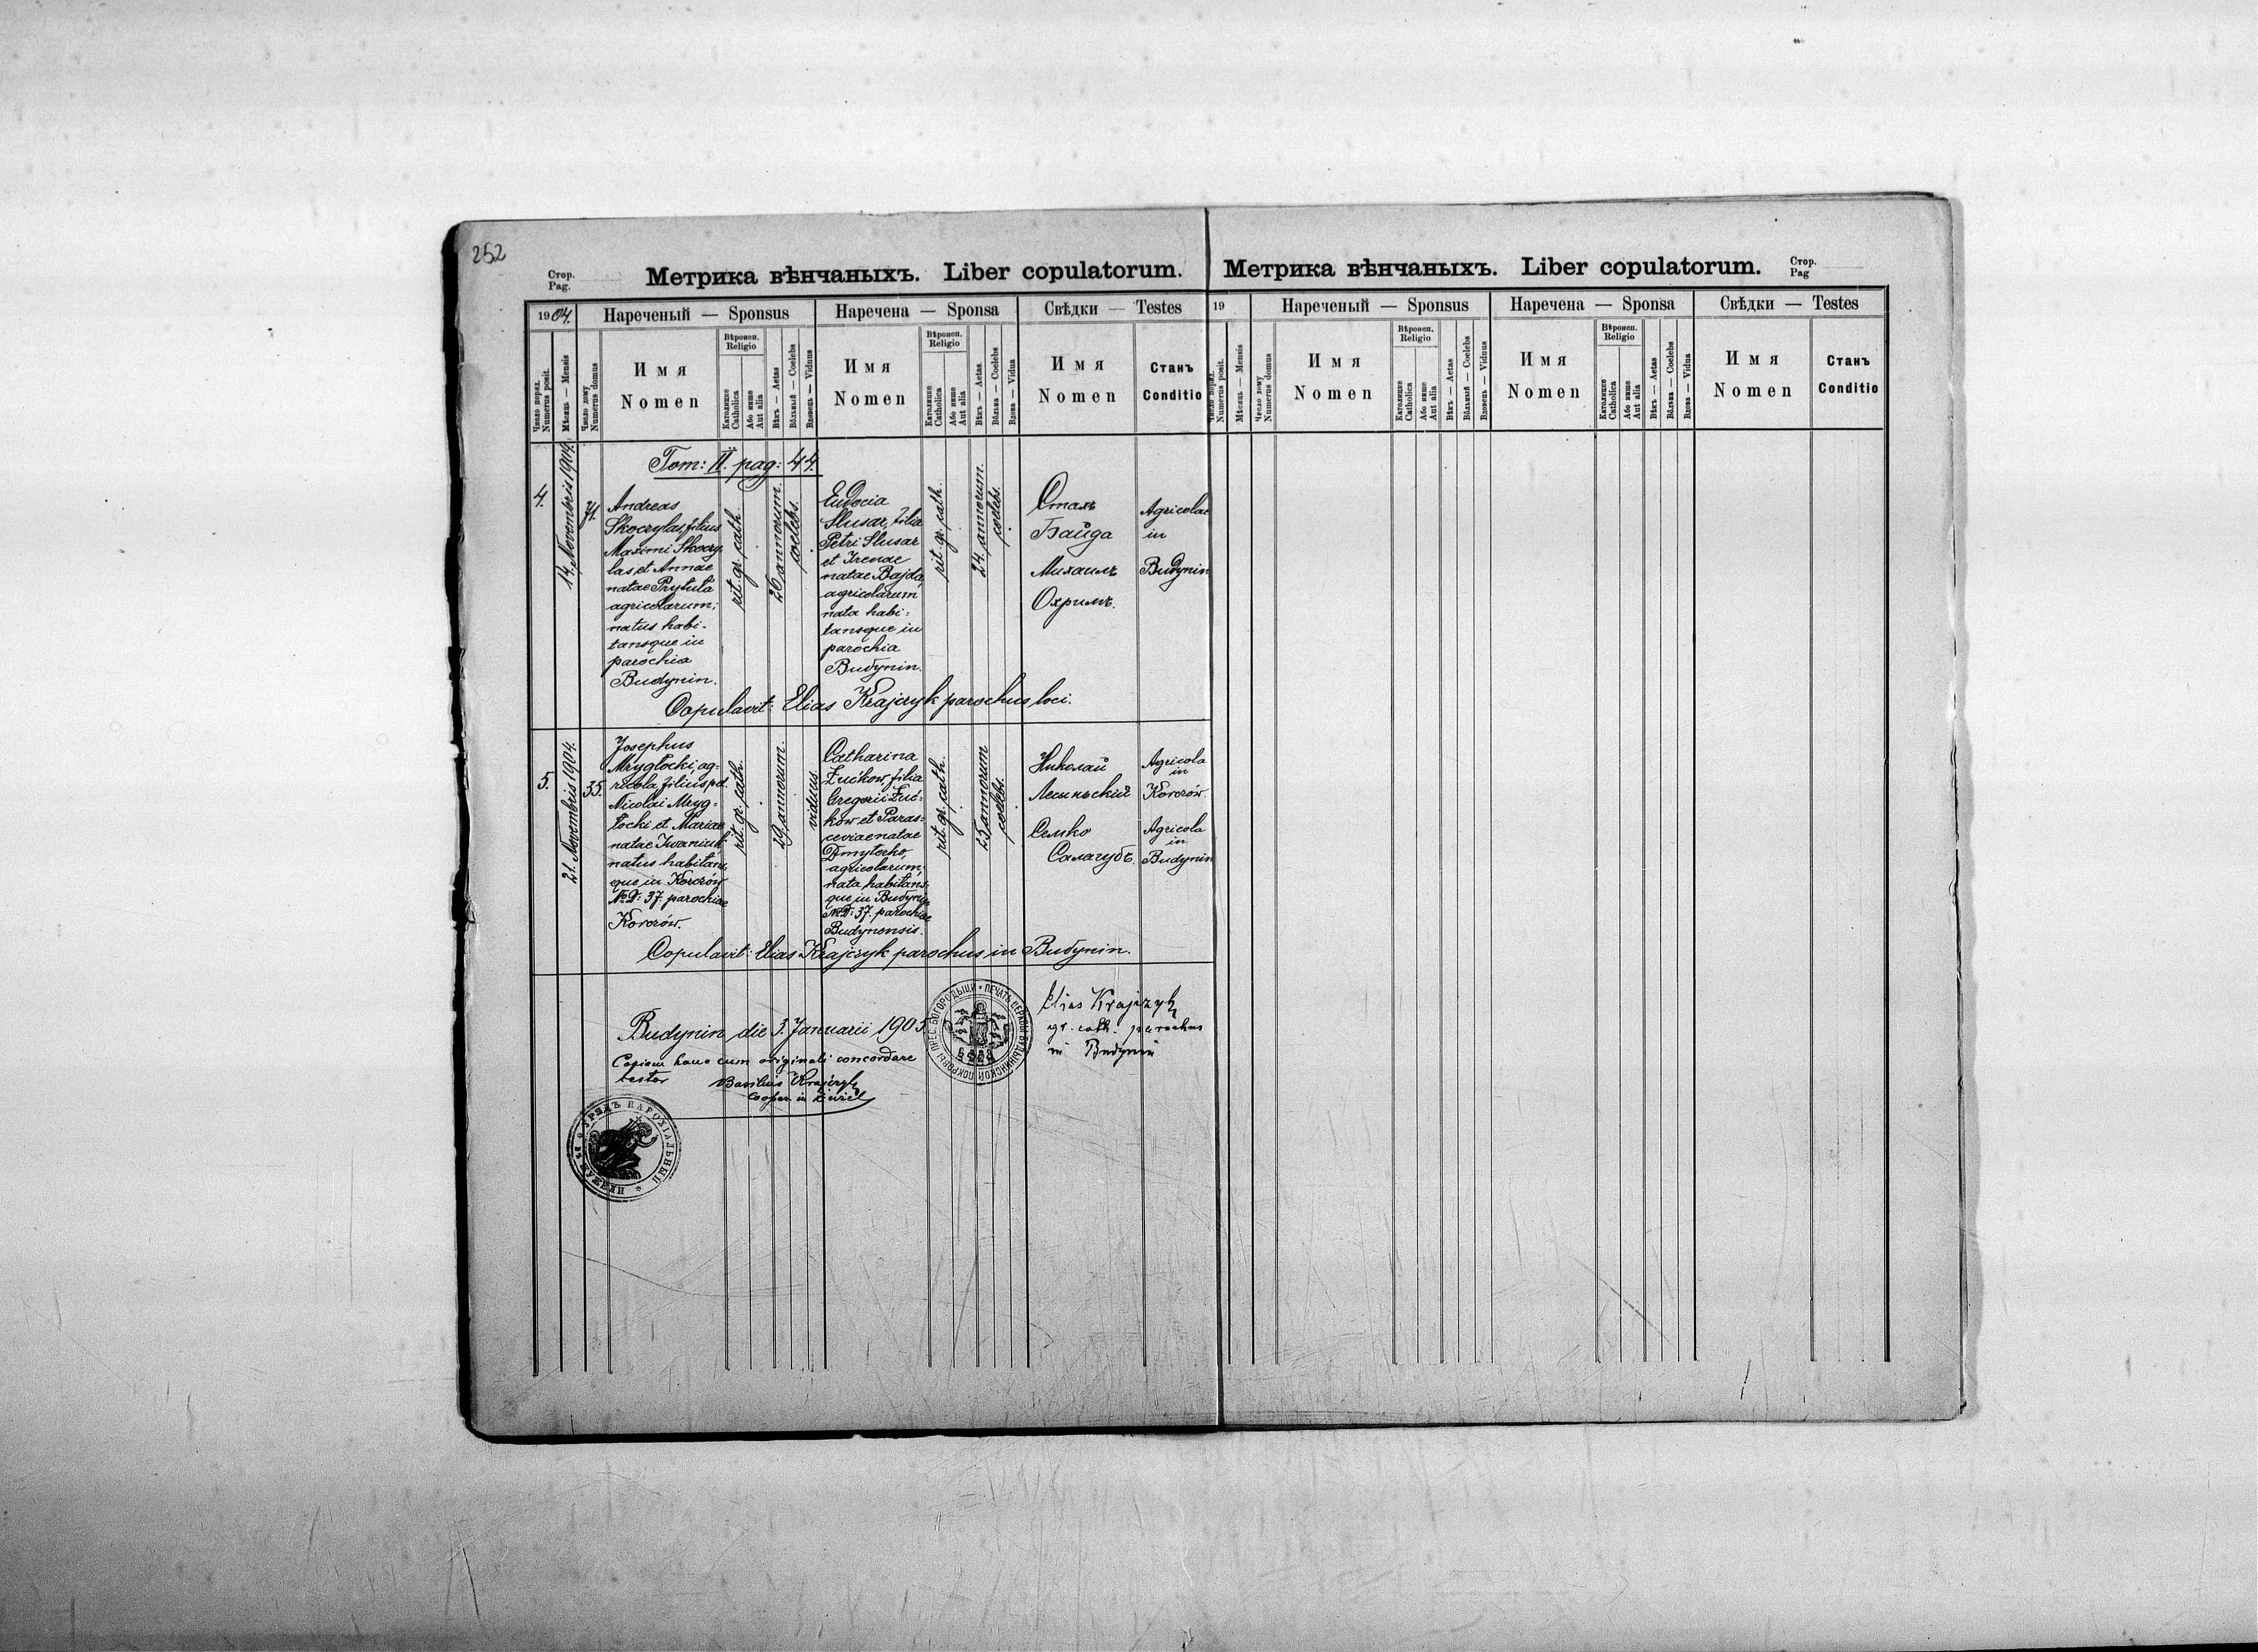 252
Стор.
Pag.
Метрика вѣнчаныхъ. Liber copulatorum.
1904.
Нареченый — Sponsus
Наречена — Sponsa
Свѣдки — Testes
Число поряд.
Numerus posit.
Мѣсяць — Mensis
Число дому
Numerus domus
Имя
Nomen
Вѣроисп.
Religio
Католицке
Catholica
Або инше
Aut alia
Вѣкъ — Aetas
Вôльный — Coelebs
Вдовець — Viduus
Имя
Nomen
Вѣроисп.
Religio
Католицке
Catholica
Або инше
Aut alia
Вѣкъ — Aetas
Вôльна — Coelebs
Вдова — Vidua
Имя
Nomen
Станъ
Conditio
Tom: II. pag: 44.
4.
14. Novembris 1904.
71.
Andreas
Skoczylas, filius
Maximi Skoczy
las, et Annae
natae Prytuła
agricolarum;
natus habi-
tansque in
parochia
Budynin.
rit. gr. cath.
26 annorum.
coelebs.
Eudocia
Slusar, filia
Petri Slusar
et Irenae
natae Bajda,
agricolarum
nata habi=
tansque in
parochia
Budynin.
rit. gr. cath.
24. annorum.
coelebs.
Стахъ
Байда
Михаилъ
Охримъ.
Agricolae
in
Budynin
Copulavit: Elias Krajczyk parochus loci.
5.
21. Novembris 1904.
35.
Josephus
Mrygłocki, ag-
ricola, filius pd.
Nicolai Mryg=
łocki et Mariae
natae Iwaniuk,
natus habitans
que in Korczów
№D: 37. parochiae
Korczów.
rit. gr. cath.
29. annorum.
viduus
Catharina
Zuikow, filia
Gregorii Zui-
kow et Paras=
ceviae natae
Dmyterko,
agricolarum,
nata habitans-
que in Budynin
№D: 37. parochiae
Budynensis.
rit. gr. cath.
25 annorum
coelebs.
Николай
Лесыньский
Семко
Салагубъ
Agricola
in
Korczów.
Agricola
in
Budynin
Copulavit: Elias Krajczyk parochus in Budynin.
Budynin die 3. Januarii 1905
Copiam hanc cum originali concordare
testor
Basilius Krajczyk
cooper. in
Elias Krajczyk
gr. cath. parochus
in Budynin
ПЕЧАТЬ ЦЕРКВИ БУДЫНИНСКОЙ ПОКРОВЫ ПРЕС. БОГОРОДЫЦИ
УРЯДЪ ПАРОХІАЛЬНЫЙ
Метрика вѣнчаныхъ. Liber copulatorum.
Стор.
Pag
19
Нареченый — Sponsus
Наречена — Sponsa
Свѣдки — Testes
Число поряд.
Numerus posit.
Мѣсяць — Mensis
Число дому
Numerus domus
Имя
Nomen
Вѣроисп.
Religio
Католицке
Catholica
Або инше
Aut alia
Вѣкъ — Aetas
Вôльный — Coelebs
Вдовець — Viduus
Имя
Nomen
Вѣроисп.
Religio
Католицке
Catholica
Або инше
Aut alia
Вѣкъ — Aetas
Вôльна — Coelebs
Вдова — Vidua
Имя
Nomen
Станъ
Conditio